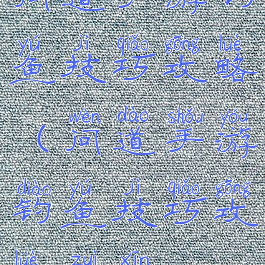 yú jì qiǎo gōng lüè
鱼技巧攻略
wèn dào shǒu yóu
（问道手游
diào yú jì qiǎo gōng
钓鱼技巧攻
lüè zuì xīn